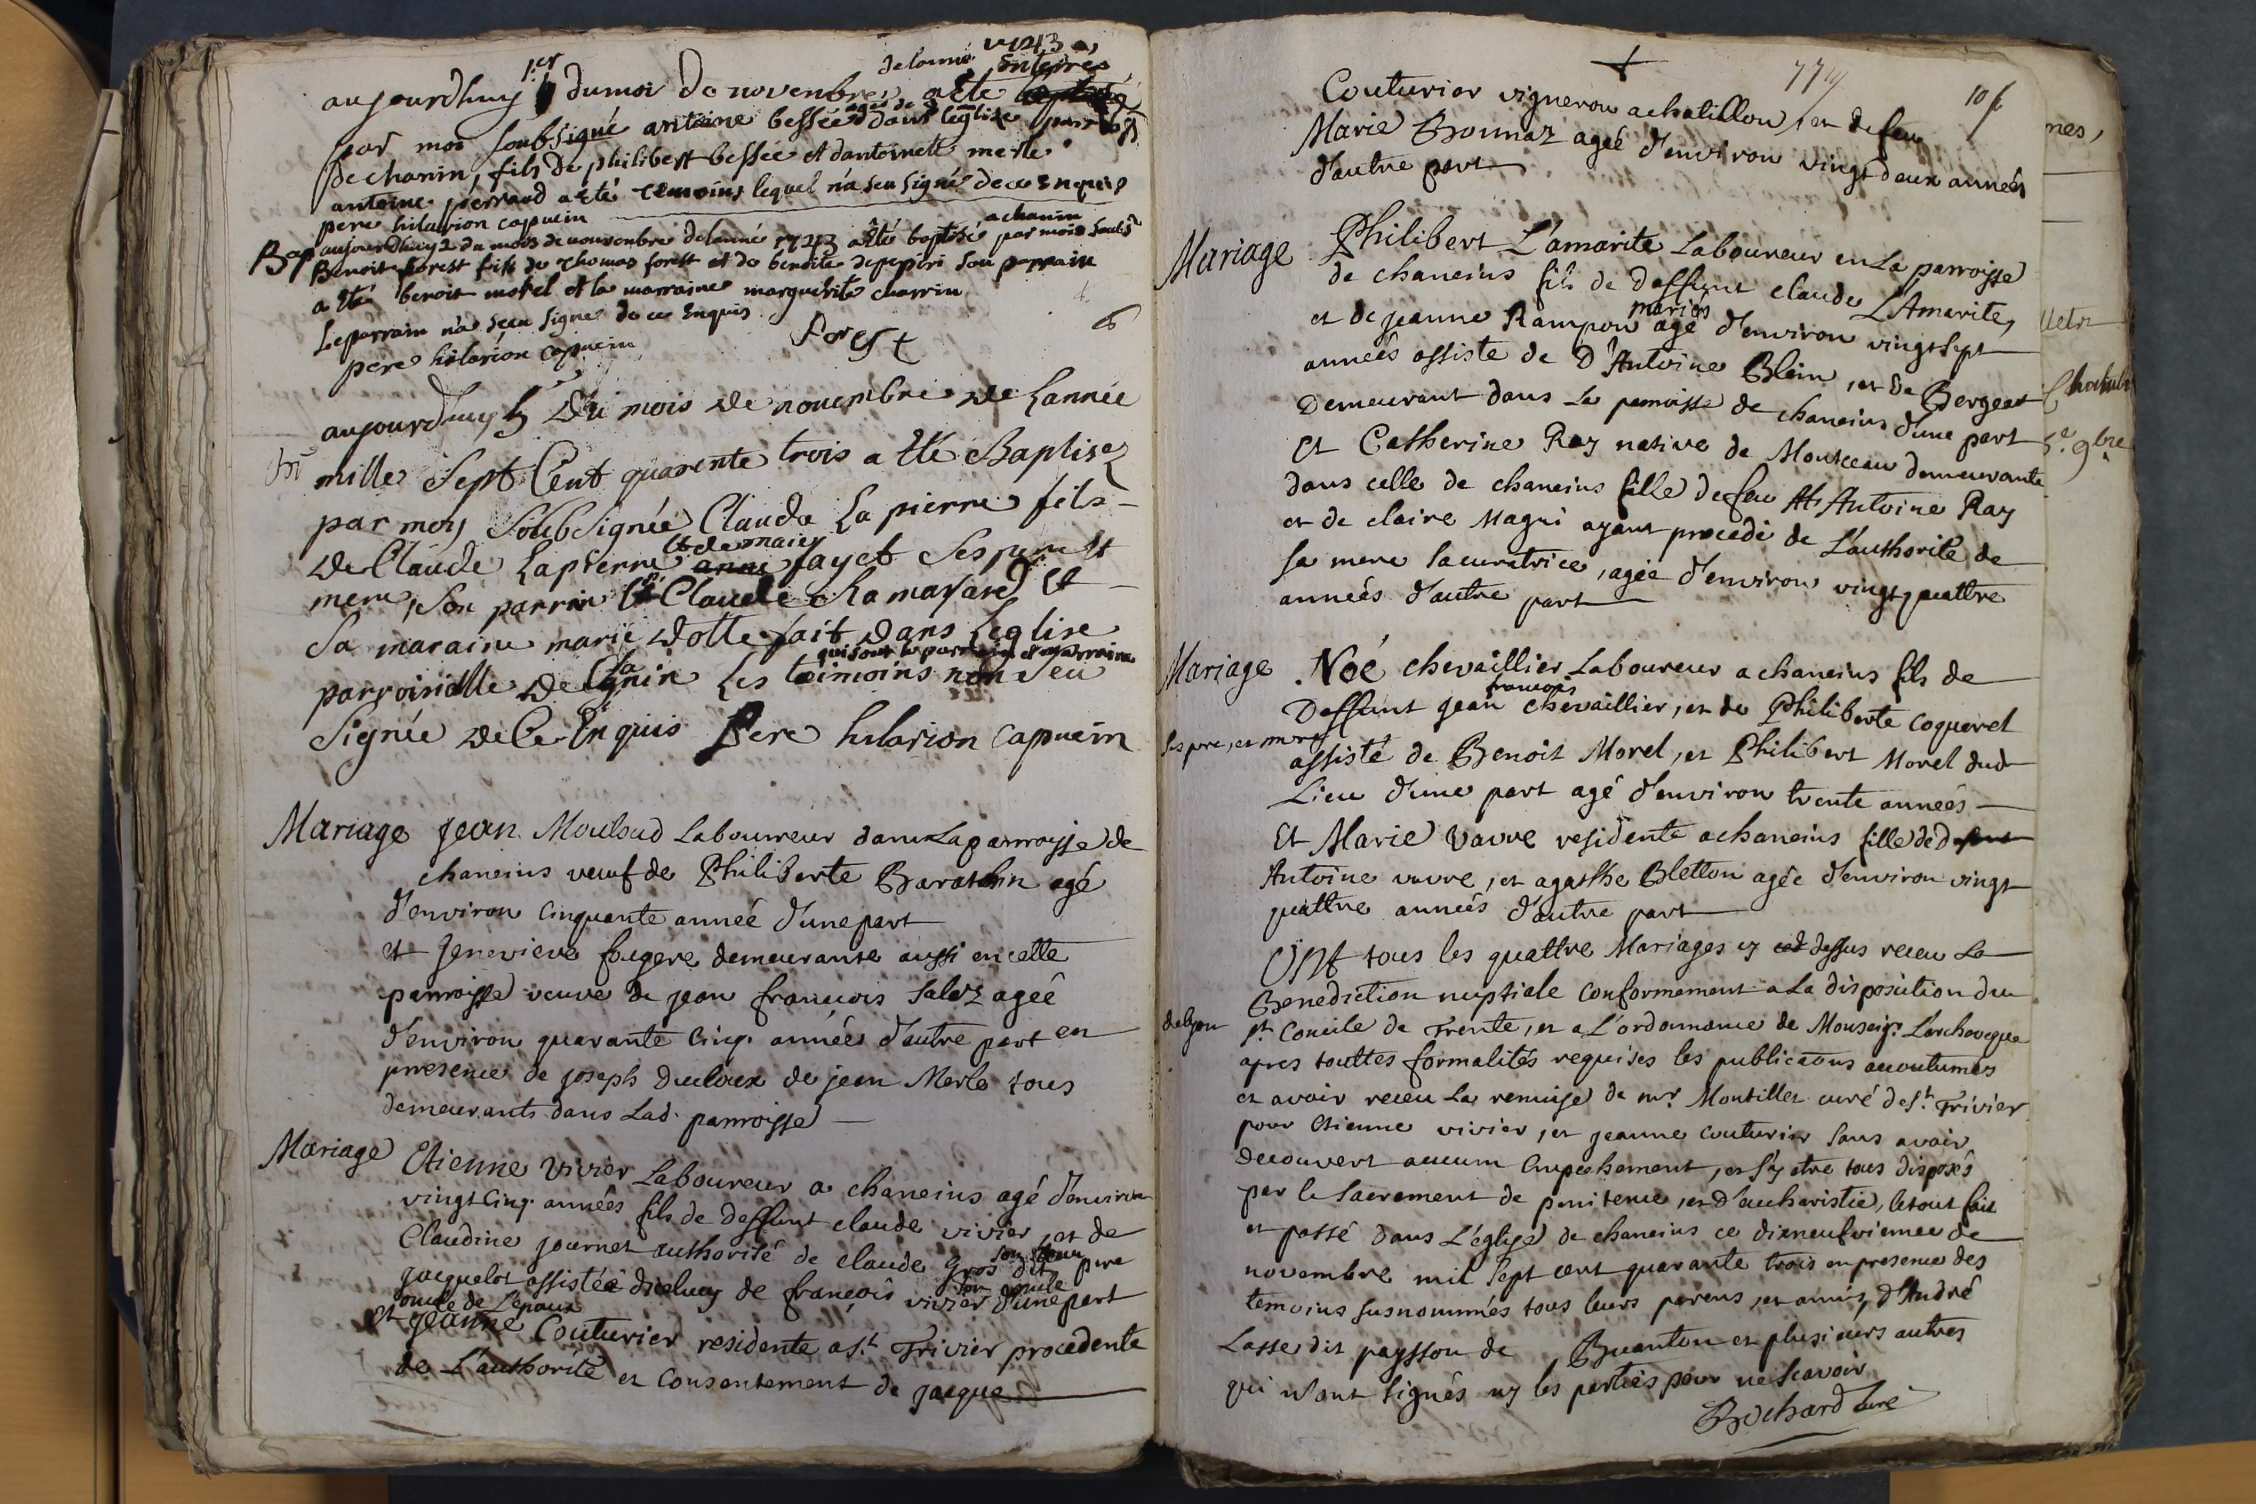 de lanné 1743
aujourdhuy 1.er du moi de novembre a ete enterré
par moi soubsigné antoine bessée agés de dans leglise
de chanin, fils de philibert bessée et dantoinette merle
antoine perraud a été temoins lequel n'a seu signé de ce enquis
pere hilarion capucin
Bap aujourdhuy 2 du mois de nouvembre delanné 1743 a êté baptisé a chanin par moi soubs.é
Benoit forest fils de Thomas forest et de benoite depeperi son parrain
a Eté benoit morel et la marraine marguerite charrin
Le parrain n'a sceu signé de ce Enquis
forest
pere hilarion capucin
6
aujourdhuy 5 du mois de nouembre de Lannée
mille Sept Cent quarente trois a été Baptisez
par moy Soubsignée Claude La pierre fils
de Claude Lapierre et de maiey fayet Ses pere et
mere, Son parrin Claude Chamarard et
Sa maraine marie dotte fait dans Leglise
qui sont le parrain et marraine
parroisialle de Chanin Les temoins non Seu
Signée de Ce Enquis Pere hilarion capucin
Mariage Jean Moulaud Laboureur dans La parroisse de
chaneins veuf de Philiberte Barathin agé
d'environ cinquante année d'une part
et Genevieve fougere demeurante aussi en cette
parroisse veuve de jean francois Salez agée
d'environ quarante cinq années d'autre part en
presence de joseph Ducloux de jean Merle tous
demeurants dans Lad. parroisse
Mariage Etienne Vivier Laboureur a chaneins agé d'environ
vingt cinq années fils de deffunt claude vivier, et de
Claudine journet authorité de claude gros dit
jacquelot assistée diceluy de francois vivier son oncle d'une part
oncle de L'epoux
et Jeanne Couturier residente a S.t Trivier procedente
de L'authorité et consentement de jacque
+
774
10 f
Couturier vigneron a chatillon, et de feu
Marie Bonnaz ageé d'environ vingt deux années
d'autre part
Mariage Philibert L'amarite Laboureur en La parroisse
de chaneins fils de deffunt claude L'Amarite,
et de jeanne Rampon mariés agé d'environ vingt sept
années assiste de D.' Antoine Blein, et De Bergeat
Demeurant dans La parroisse de chaneins d'une part
Et Catherine Ray native de Montceau demeurante
dans celle de chaneins fille de feu Antoine Ray
et de claire Magni ayant procedé de L'authorité de
sa mere sa curatrice, agée d'environ vingt quattre
années d'autre part
Mariage Noé chevaillier Laboureur a chaneins fils de
Deffunt jean francois chevaillier, et de Philiberte coquerel
ses pere, et mere
assisté de Benoit Morel, et Philibert Morel dud
Lieu d'une part agé d'environ trente années
Et Marie Vavre residente a chaneins fille de defunt
Antoine vavre, et agathe Bletton agée d'environ vingt
quattre années d'autre part
Ont tous les quattre Mariages cy dessus receu La
Benediction nuptiale conformement a La disposition du
S.t Concile de Trente, et a L'ordonnance de Monseig.r L'archeveque
de Lyon
apres touttes formalités requises les publications accoutumés
et avoir receu La remise de m.r Montillet curé de S.t Trivier
pour Etienne vivier, et jeanne couturier sans avoir
decouvert aucun Empechement, et s'y etre tous disposés
par le Sacrement de penitence, et d'eucharistie, le tout fait
et passé dans L'église de chaneins ce dixneufvieme de
novembre mil sept cent quarante trois en presence des
temoins susnommés tous leurs parens, et amis, d'André
Lasse dit paysson de Buenton et plusieurs autres
qui n'ont signés ny les parties pour ne scavoir
Bochard Curé
nes,